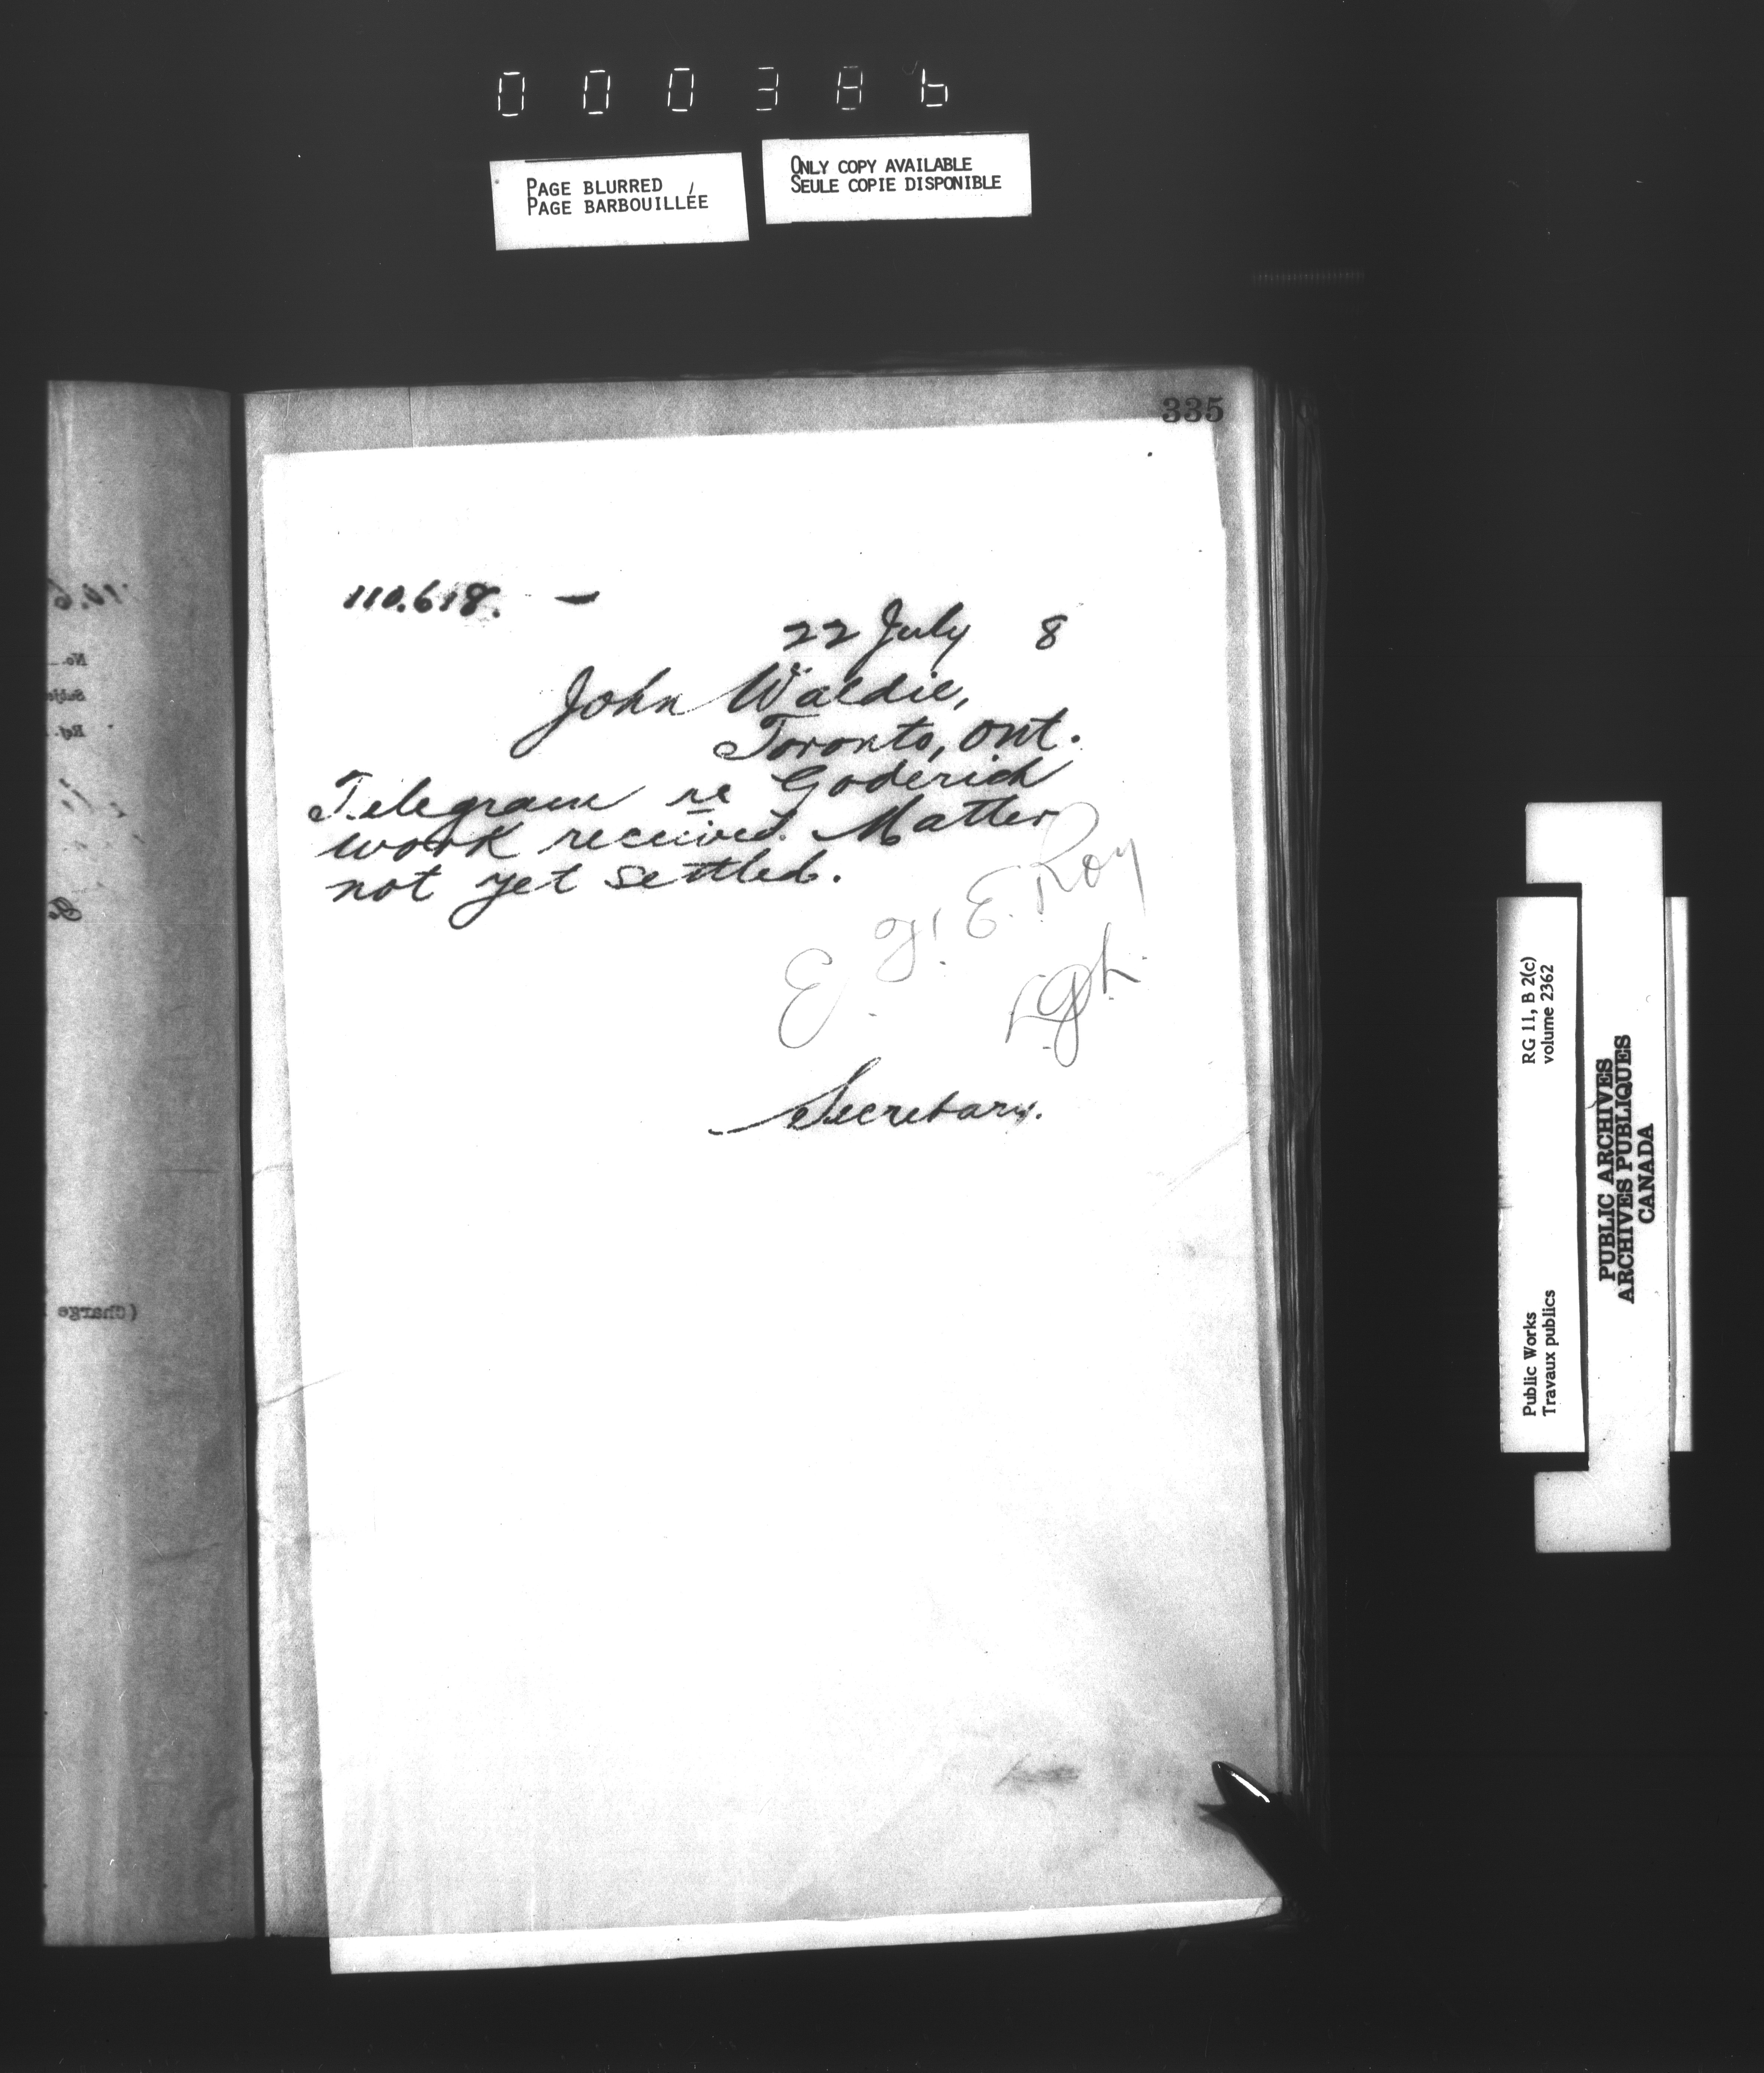 000386
PAGE BLURRED
PAGE BARBOUILLÉE
ONLY COPY AVAILABLE
SEULE COPIE DISPONIBLE
335
110.618. —
22 July 8
John Waldie,
Toronto, Ont.
Telegram re Goderich
work received. Matter
not yet settled.
E. F. E. Roy
Secretary.
(Charge
RG 11, B 2(c)
volume 2362
Public Works
Travaux publics
PUBLIC ARCHIVES
ARCHIVES PUBLIQUES
CANADA